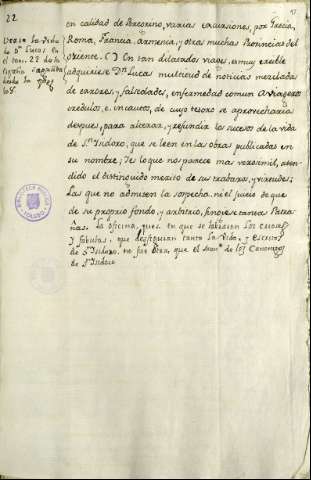 22
17
en calidad de Peregrino, varias excursiones, por Grecia,
Roma, Francia, Armenia, y otras muchas Provincias del
Oriente. ( ) En tan dilatados viages, es muy creible
adquiriese Dn. Lucas multitud de noticias mezcladas
de errores, y falsedades, enfermedad comun a viageros
credulos, e incautos, de cuyo tesoro se aprovecharia
despues, para alterar, y refundir los sucesos de la vida
de Sn. Isidoro, que se leen en las obras publicadas en
su nombre; De lo que nos parece mas verosimil, aten-
dido el distinguido merito de sus trabajos, y virtudes;
Las que no admiten la sospecha, ni el juicio de que
de su proprio fondo, y arbitrio, fingiese tantas Patra-
ñas. La oficina, pues, en que se fabrican los errores
y fabulas, que desfiguran tanto la vida, y escritos
de Sn. Isidoro, no fue otra, que el de los Canonigos
de Sn. Isidro
de Dn. Lucas en
el tom. 22 de la
España Sagrada
desde la pag.
108
BIBLIOTECA PUBLICA
TOLEDO